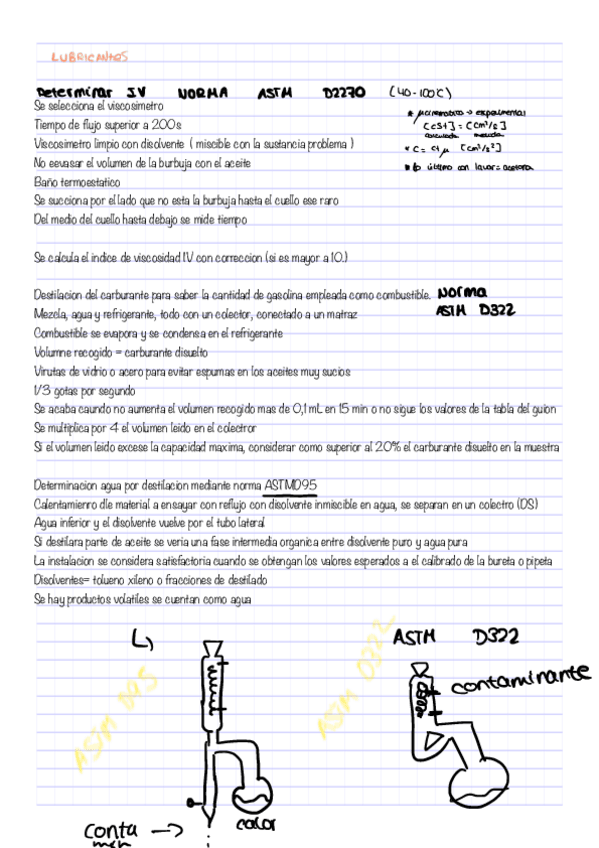 LUBRICANTES
Determinar IV NORMA ASTM D2270 (40-100ºC)
Se selecciona el viscosimetro
Tiempo de flujo superior a 200s
Viscosimetro limpio con disolvente ( miscible con la sustancia problema )
No eevasar el volumen de la burbuja con el aceite
Baño termoestatico
Se succiona por el lado que no esta la burbuja hasta el cuello ese raro
Del medio del cuello hasta debajo se mide tiempo
* μ cinematica → experimental
[cSt] = [cm²/s]
calculada medida
* C = ct μ [cm²/s²]
* lo último con lavar = acetona
Se calcula el indice de viscosidad IV con correccion (si es mayor a 10.)
Destilacion del carburante para saber la cantidad de gasolina empleada como combustible. Norma
ASTM D322
Mezcla, agua y refrigerante, todo con un colector, conectado a un matraz
Combustible se evapora y se condensa en el refrigerante
Volumne recogido = carburante disuelto
Virutas de vidrio o acero para evitar espumas en los aceites muy sucios
1/3 gotas por segundo
Se acaba caundo no aumenta el volumen recogido mas de 0,1 mL en 15 min o no sigue los valores de la tabla del guion
Se multiplica por 4 el volumen leido en el colectror
Si el volumen leido excese la capacidad maxima, considerar como superior al 20% el carburante disuelto en la muestra
Determinacion agua por destilacion mediante norma ASTMD95
Calentamienro dle material a ensayar con reflujo con disolvente inmiscible en agua, se separan en un colectro (DS)
Agua inferior y el disolvente vuelve por el tubo lateral
Si destilara parte de aceite se veria una fase intermedia organica entre disolvente puro y agua pura
La instalacion se considera satisfactoria cuando se obtengan los valores esperados a el calibrado de la bureta o pipeta
Disolventes= tolueno xileno o fracciones de destilado
Se hay productos volatiles se cuentan como agua
ASTM D95
ASTM D322
ASTM D322
contaminante
calor
conta →